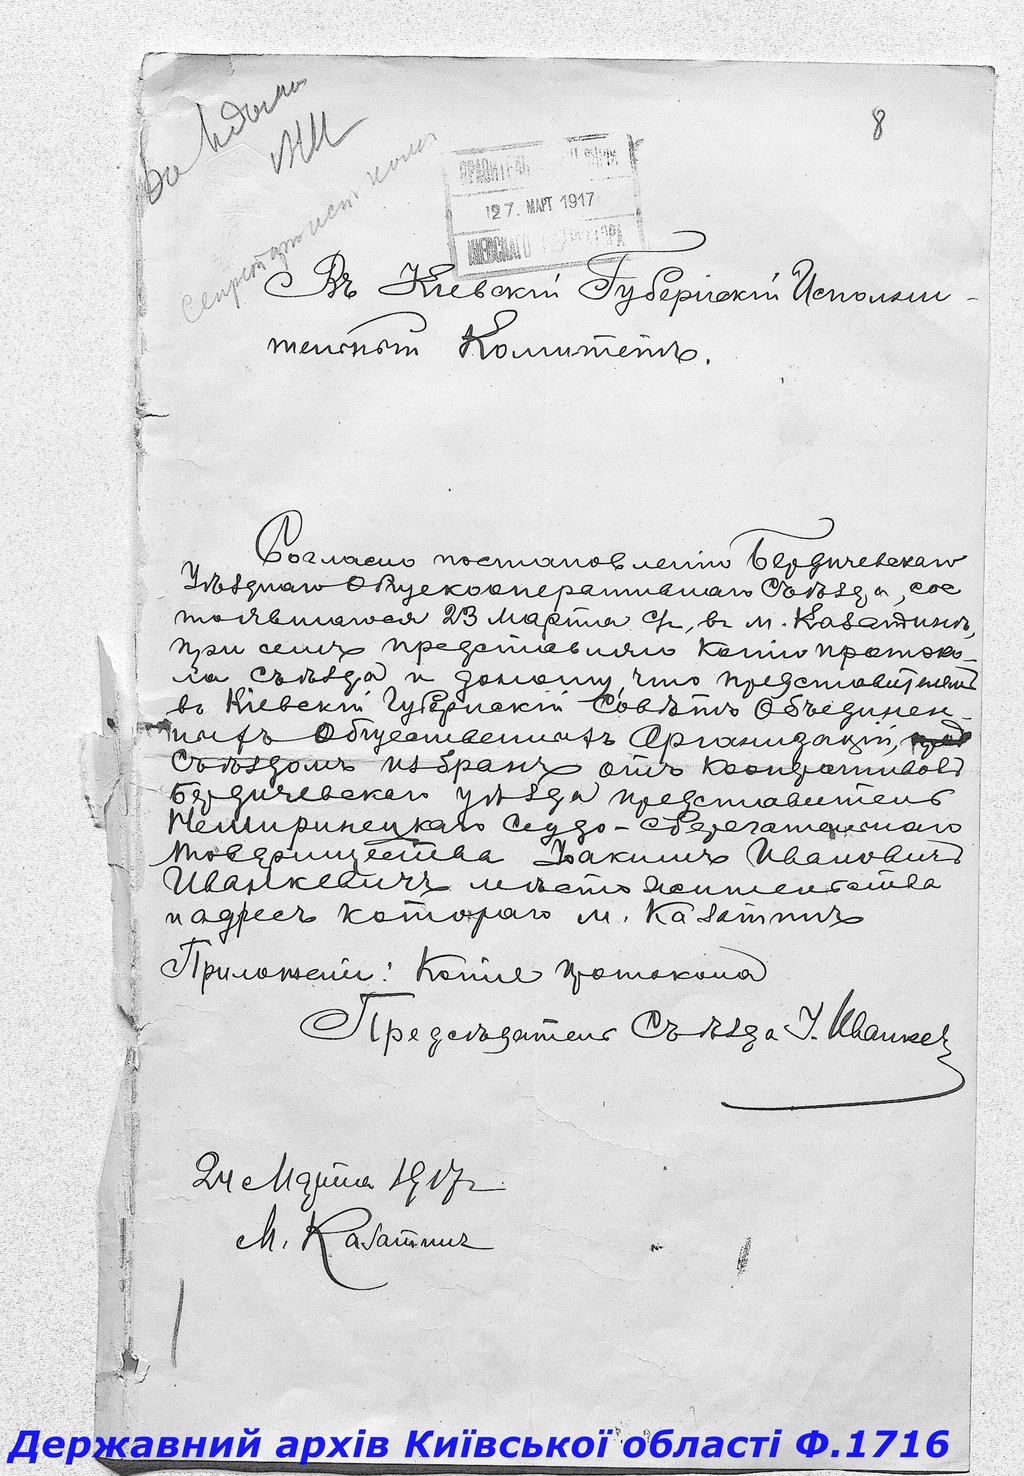 8
27. МАРТ 1917
КИЕВСКАГО
Въ Кіевскій Губернскій Исполни-
тельный Комитетъ.
Согласно постановленію Бердичевскаго
Уѣзднаго Общекооперативнаго Съѣзда, сос
тоявшагося 23 Марта с/г, въ м. Казатинѣ,
при семъ представляю копію протоко-
ла съѣзда и доношу, что представителемъ
въ Кіевскій Губернскій Совѣтъ Объединен-
ныхъ Общественныхъ Организацій,
Съѣздомъ избранъ отъ кооперативовъ
Бердичевскаго уѣзда представитель
Ссудо-Сберегательнаго
Товарищества Іоакимъ Ивановичъ
Иванкевичъ мѣсто жительства
и адресъ котораго м. Казатинъ
Приложеніе: Копія протокола
Предсѣдатель Съѣзда І. Иванкевич
24 Марта 1917 г.
М. Казатинъ
Державний архів Київської області Ф.1716